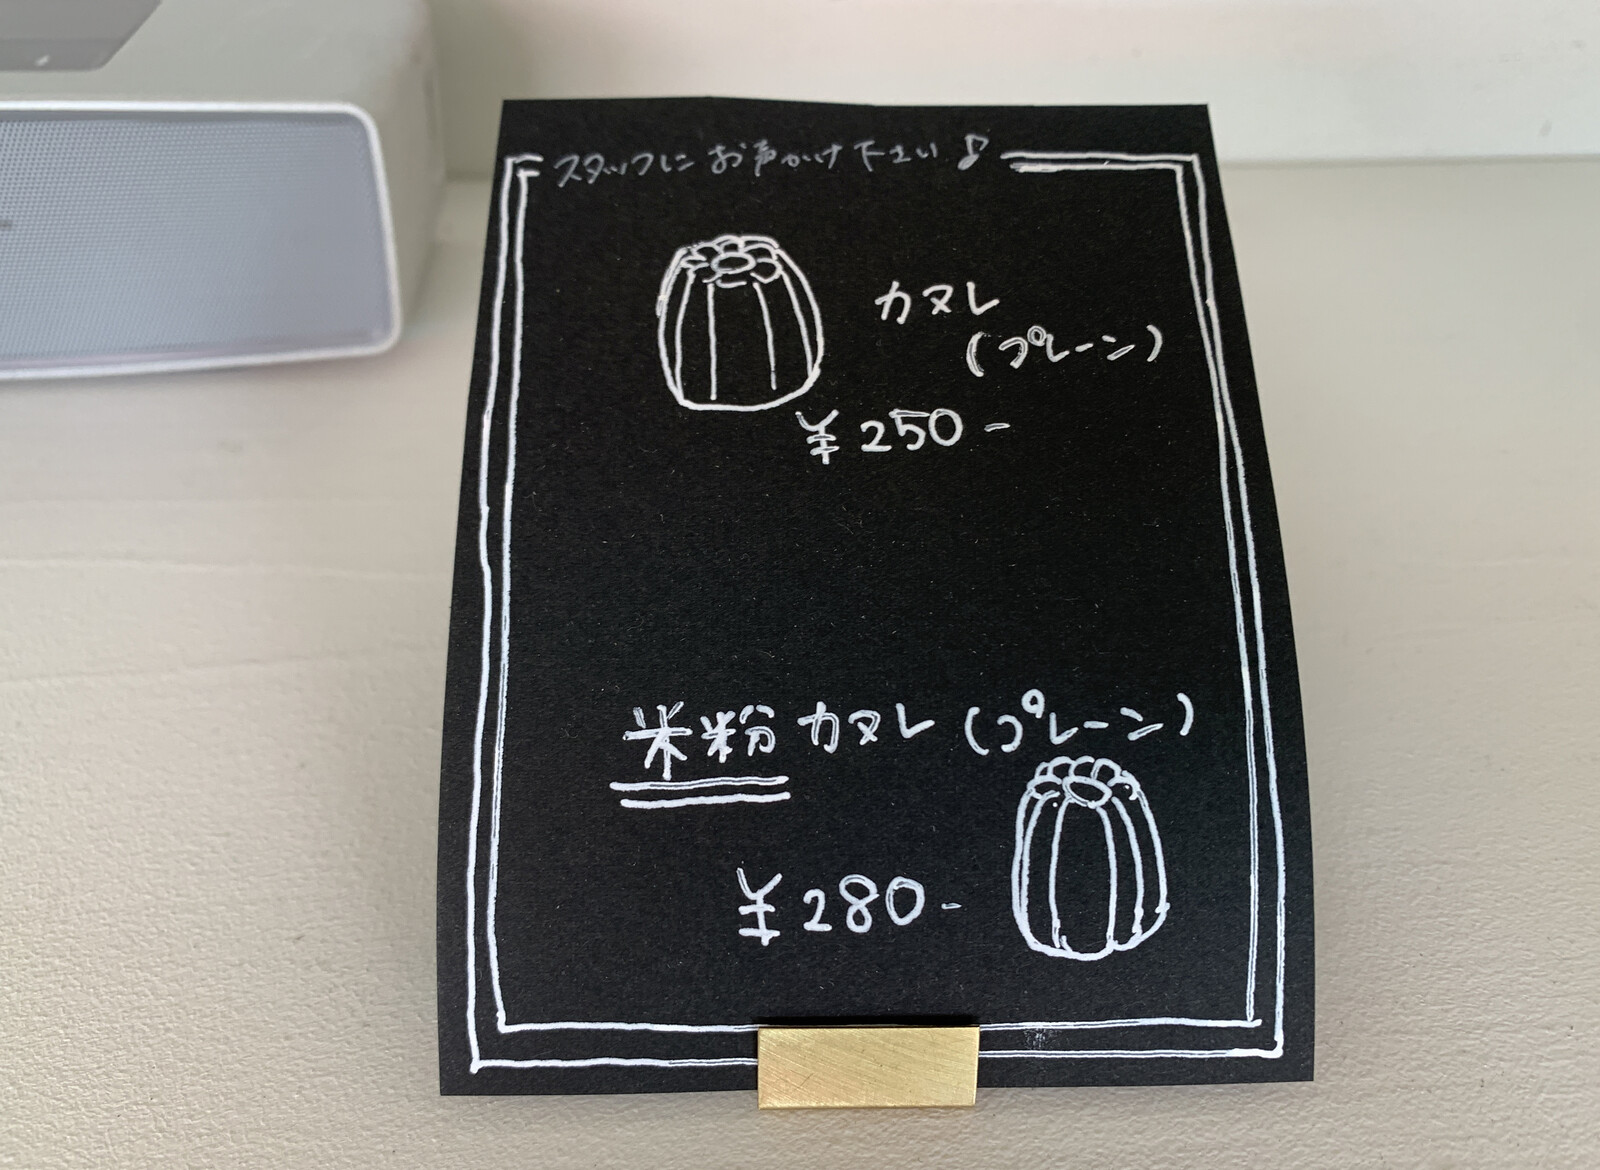 スタッフにお声かけ下さい♪
カヌレ
(プレーン)
¥250-
米粉カヌレ(プレーン)
¥280-